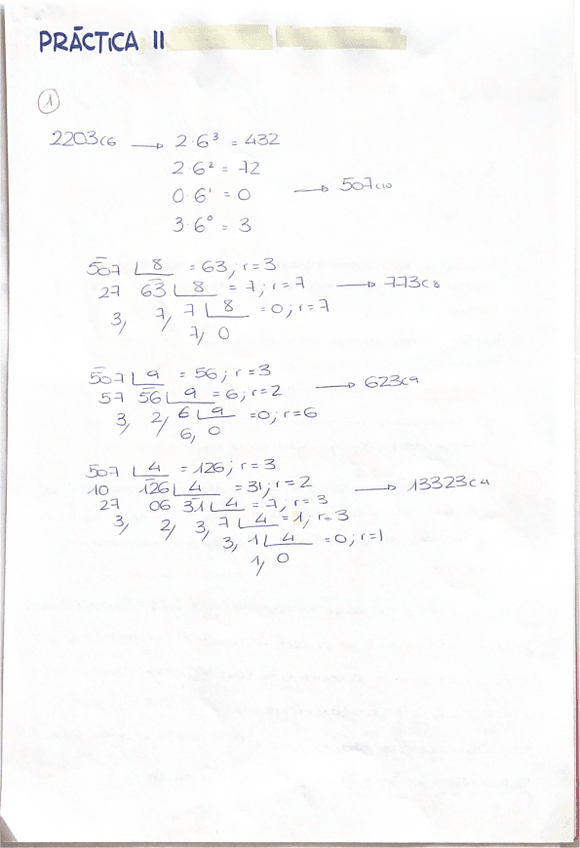 PRÁCTICA II
1
2203c6 → 2·6³ = 432
2·6² = 72
0·6¹ = 0 → 507c10
3·6⁰ = 3
507 8 = 63; r=3
27 63 8 = 7; r=7 → 773c8
3, 7, 7 8 = 0; r=7
7, 0
507 9 = 56; r=3
57 56 9 = 6; r=2 → 623c9
3, 2, 6 9 =0; r=6
6, 0
507 4 = 126; r=3
10 126 4 = 31; r=2 → 13323c4
27 06 31 4 = 7; r=3
3, 2, 3, 7 4 = 1; r=3
3, 1 4 = 0; r=1
1, 0